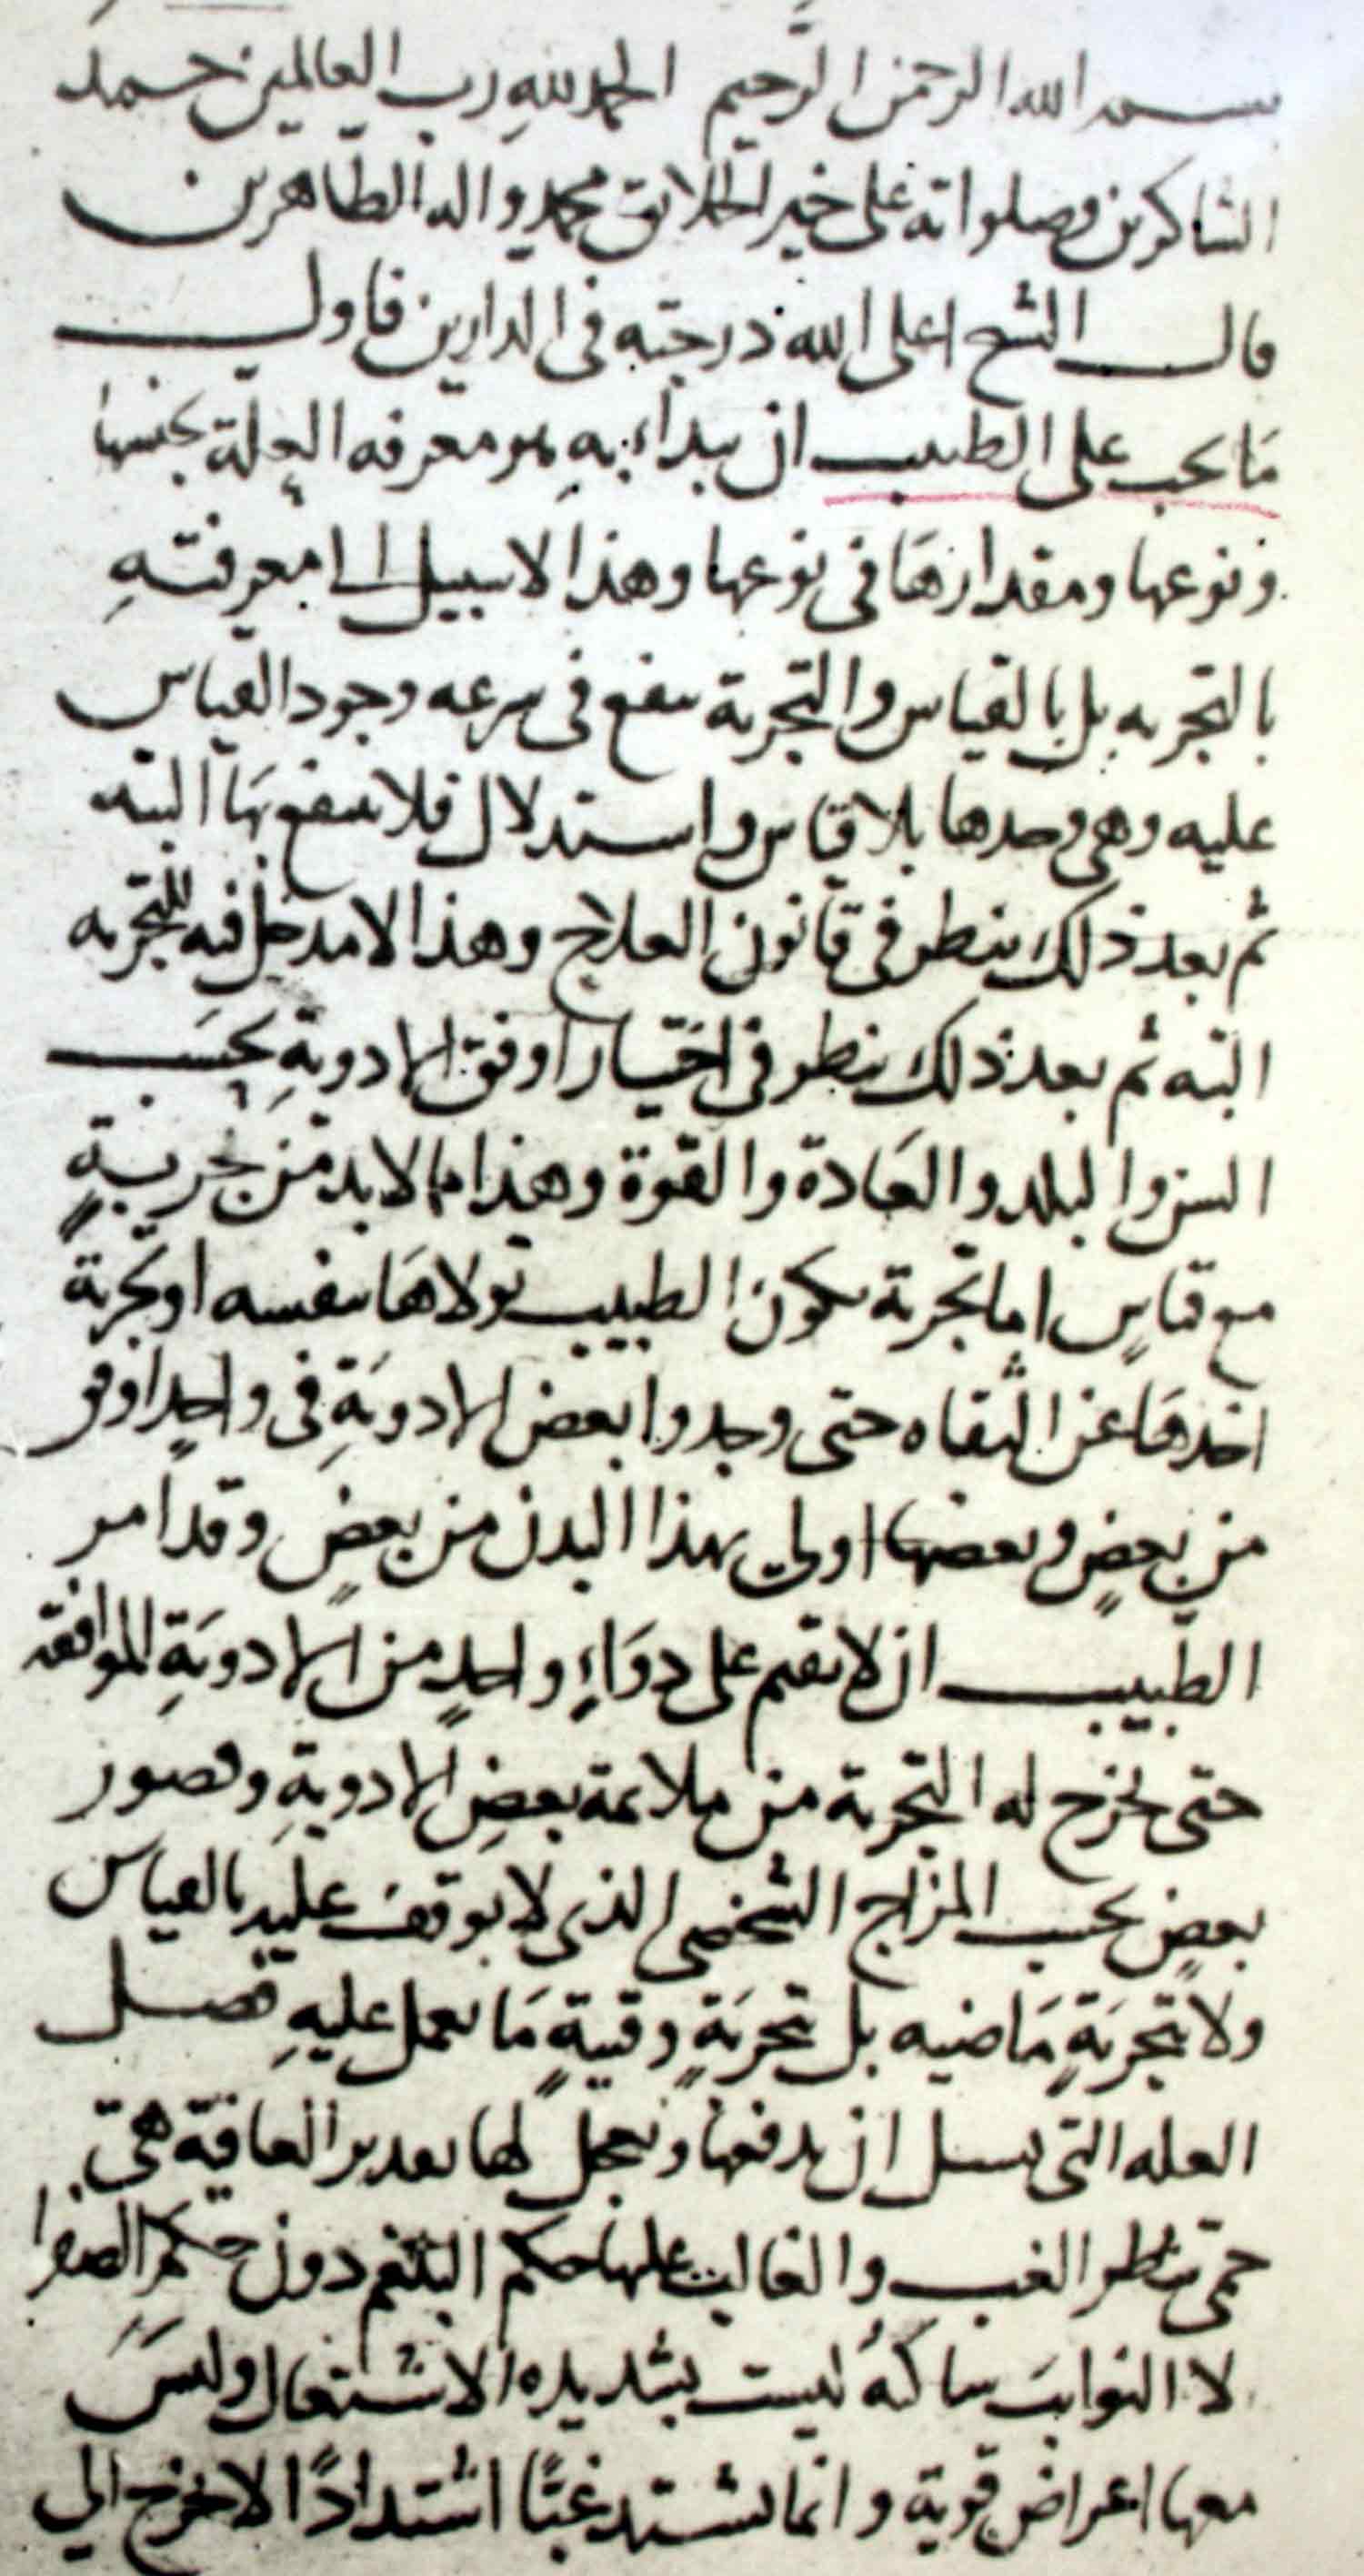 بسم الله الرحمن الرحيم الحمد لله رب العالمين حمد
الشاكرين وصلواته على خير الخلايق محمد واله الطاهرين
قال الشيخ اعلى الله درجته في الدارين فاول
ما يجب على الطبيب ان يبداء به هو معرفه العلة بجنسها
ونوعها ومقدارها في نوعها وهذا لا سبيل الى معرفته
بالتجربه بل بالقياس والتجربة ينفع في سرعه وجود القياس
عليه وهي وحدها بلا قياس واستدلال فلا ينفع بها البته
ثم بعد ذلك ينظر في قانون العلاج وهذا لا مدخل فيه للتجربه
البته ثم بعد ذلك ينظر في اختيار اوفق الادوية بحسب
السن والبلد والعادة والقوة وهذا مما لابد من تجربة
مع قياس اما تجربة يكون الطبيب تولاها بنفسه او تجربة
اخذها عن الثقاه حتى وجدوا بعض الادوية في واحد اوفق
من بعض وبعضها اولى بهذا البدن من بعض وقد امر
الطبيب ان لا يقيم على دواء واحد من الادوية الموافقه
حتى يخرج له التجربة من ملائمة بعض الادوية وقصور
بعض بحسب المزاج الشخصي الذي لا يوقف عليه بالقياس
ولا تجربة ماضيه بل تجربة وقتية ما يعمل عليه فصل
العله التي يسل ان يدفعها ويعجل لها بعدير العاقبة هي
حمى شطر الغب والغالب عليها حكم البلغم دون حكم الصفرا
لا النوايب ساكنة ليست بشديده الاشتعال وليس
معها اعراض قوية وانما يشتد غبًا اشتدادًا لا يخرج الي